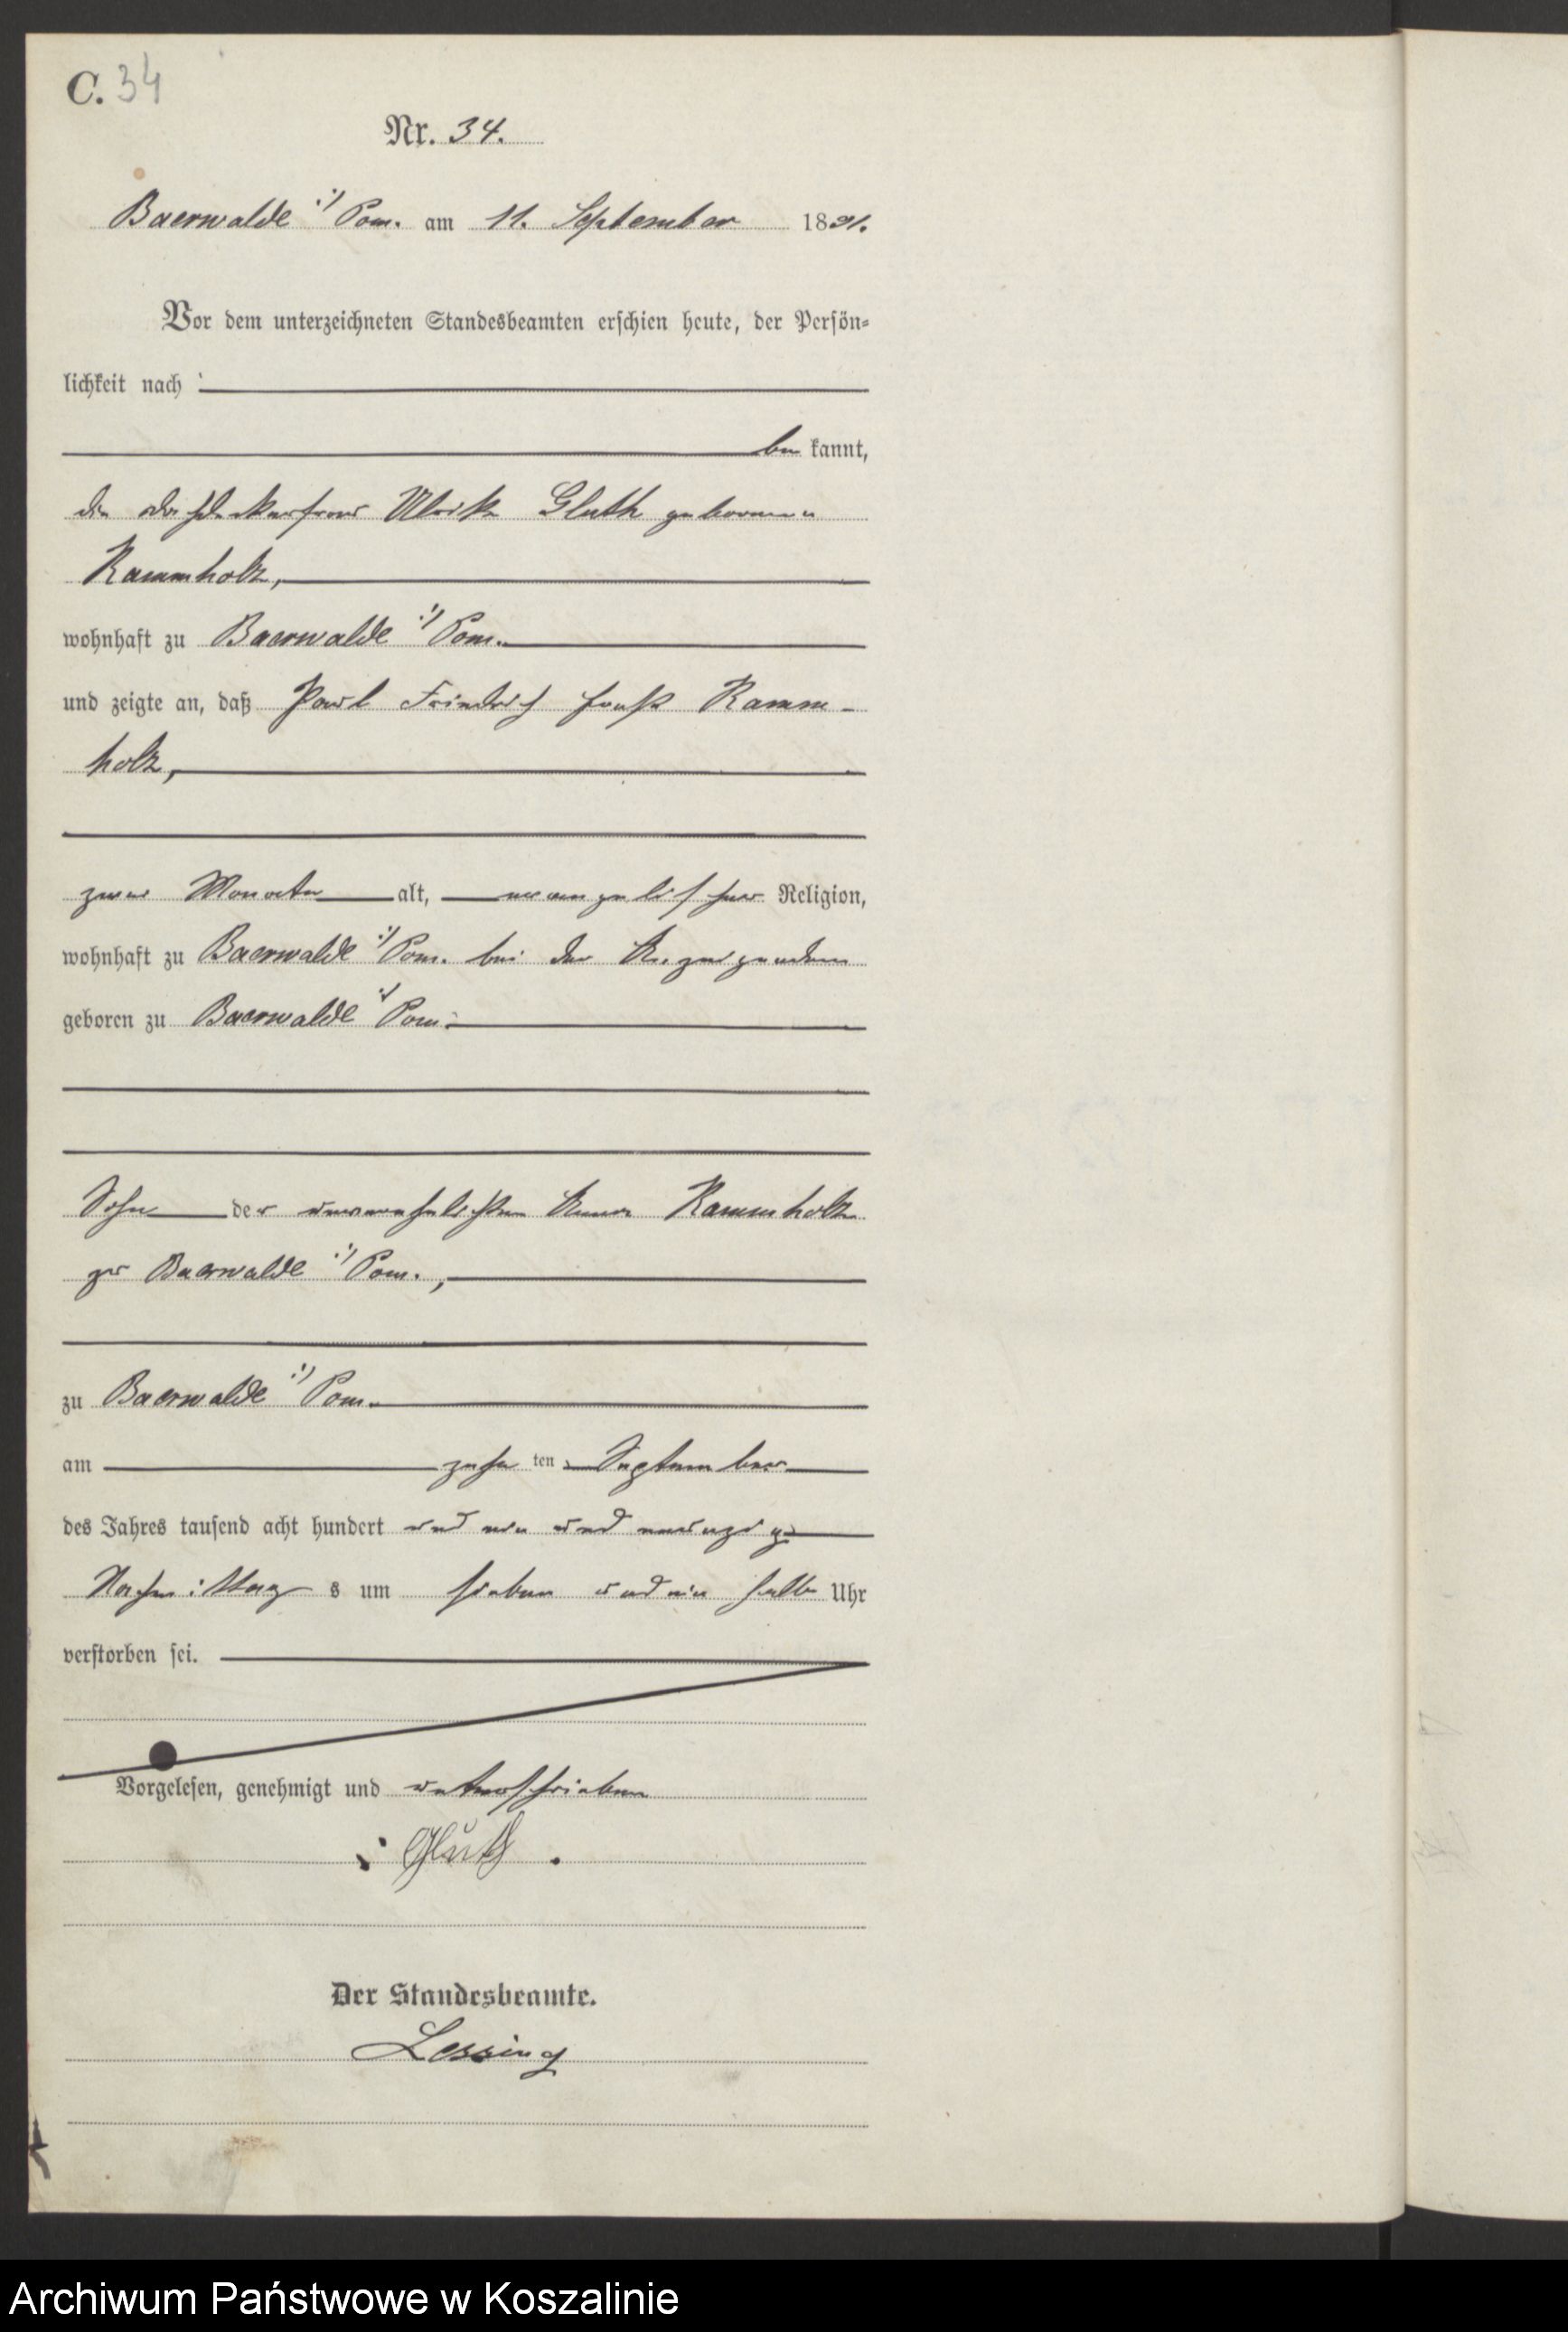 C. 34
Nr. 34.
Baerwalde i/Pom. am 11. September 1891.
Vor dem unterzeichneten Standesbeamten erschien heute, der Persön-
lichkeit nach
be kannt,
die Dachdeckerfrau Ulrike Gluth geborene
Rammholz,
wohnhaft zu Baerwalde i/Pom.
und zeigte an, daß Paul Friedrich Ramm-
holz,
zwei Monate alt, evangelischer Religion,
wohnhaft zu Baerwalde i/Pom. bei der Anzeigenden
geboren zu Baerwalde i/Pom.
Sohn der unverehelichten Anna Rammholz
zu Baerwalde i/Pom.,
zu Baerwalde i/Pom.
am zehn ten September
des Jahres tausend acht hundert und ein und neunzig
Nachmittag s um sieben und ein halb Uhr
verstorben sei.
Vorgelesen, genehmigt und unterschrieben
Gluth.
Der Standesbeamte.
Lessing
Archiwum Państwowe w Koszalinie